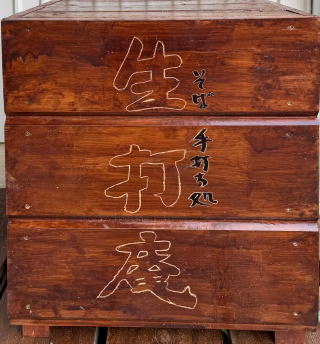 そば手打ち処
生打庵